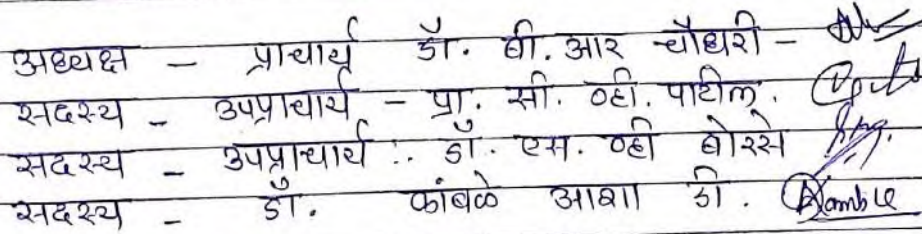 अध्यक्ष - प्राचार्य डॉ. बी. आर चौधरी -
सदस्य - उपप्राचार्य - प्रा. सी. व्ही. पाटील.
सदस्य - उपप्राचार्य :. डॉ. एस. व्ही बोरसे
सदस्य - डॉ. कांबळे आशा डी. Kamble